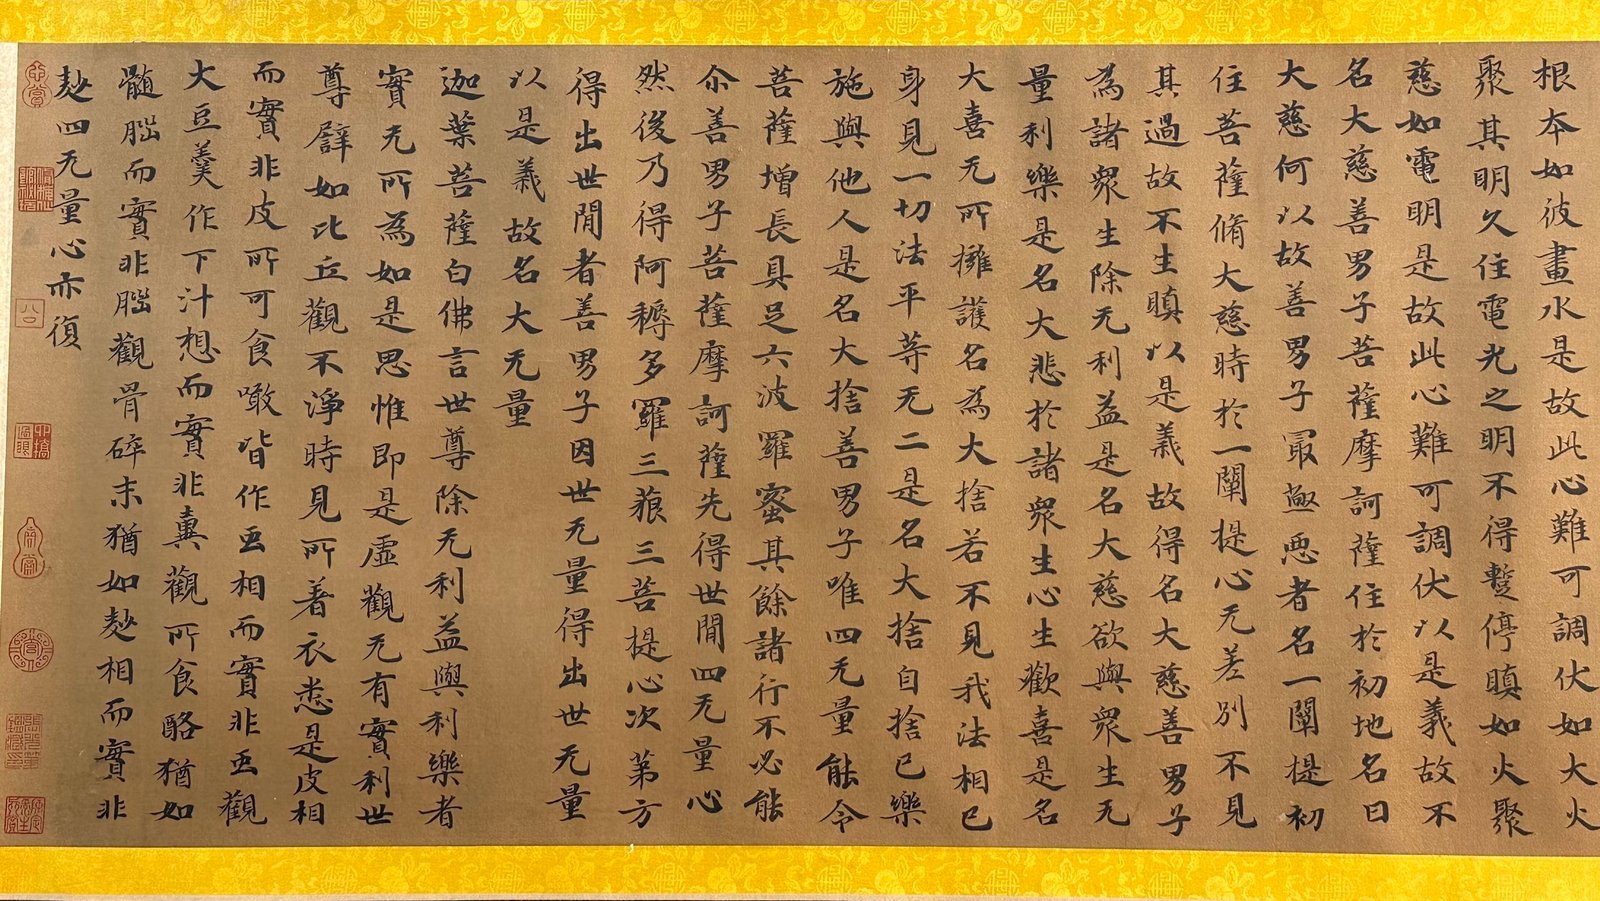 根本如彼畫水是故此心難可調伏如大火
聚其明久住電光之明不得蹔停瞋如火聚
慈如電明是故此心難可調伏以是義故不
名大慈善男子菩薩摩訶薩住於初地名曰
大慈何以故善男子冣極惡者名一闡提初
住菩薩脩大慈時於一闡提心无差別不見
其過故不生瞋以是義故得名大慈善男子
為諸眾生除无利益是名大慈欲與眾生无
量利樂是名大悲於諸眾生心生歡喜是名
大喜无所擁護名為大捨若不見我法相已
身見一切法平等无二是名大捨自捨已樂
施與他人是名大捨善男子唯四无量能令
菩薩增長具足六波羅蜜其餘諸行不必能
尒善男子菩薩摩訶薩先得世間四无量心
然後乃得阿耨多羅三藐三菩提心次第方
得出世間者善男子因世无量得出世无量
以是義故名大无量
迦葉菩薩白佛言世尊除无利益與利樂者
實无所為如是思惟即是虛觀无有實利世
尊譬如比丘觀不淨時見所著衣悉是皮相
而實非皮所可食噉皆作虫相而實非虫觀
大豆羹作下汁想而實非糞觀所食酪猶如
髓腦而實非腦觀骨碎末猶如麨相而實非
麨四无量心亦復